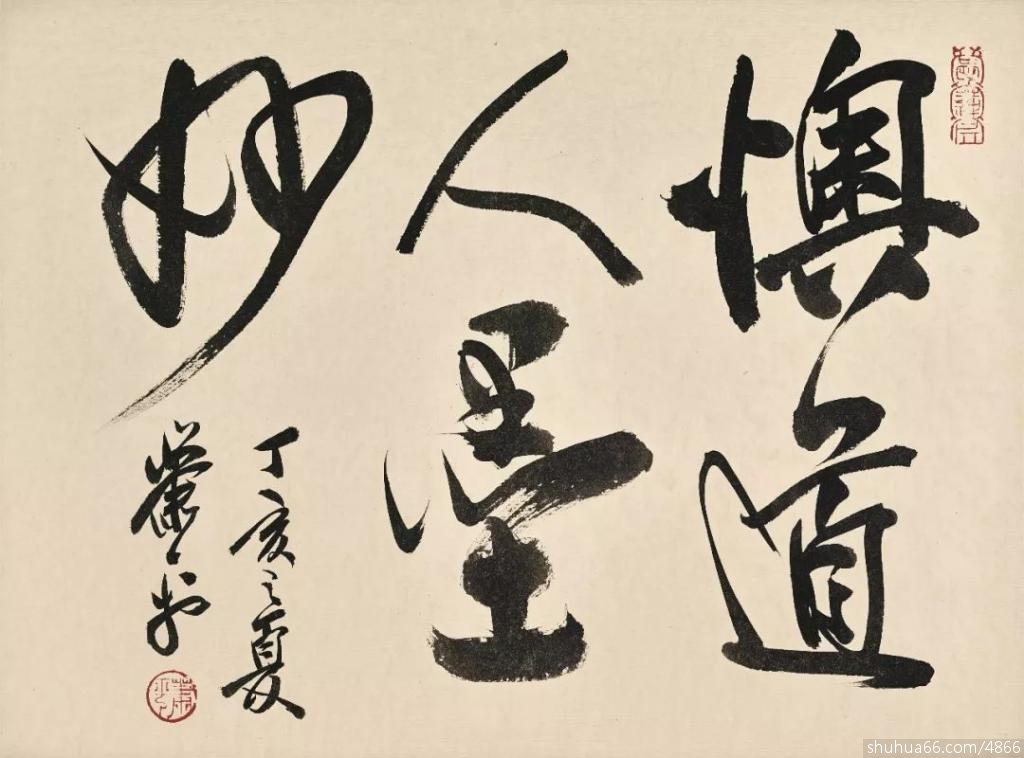 懊道
人墨
妙
丁亥之夏
蕭平
shuhua66.com/4866